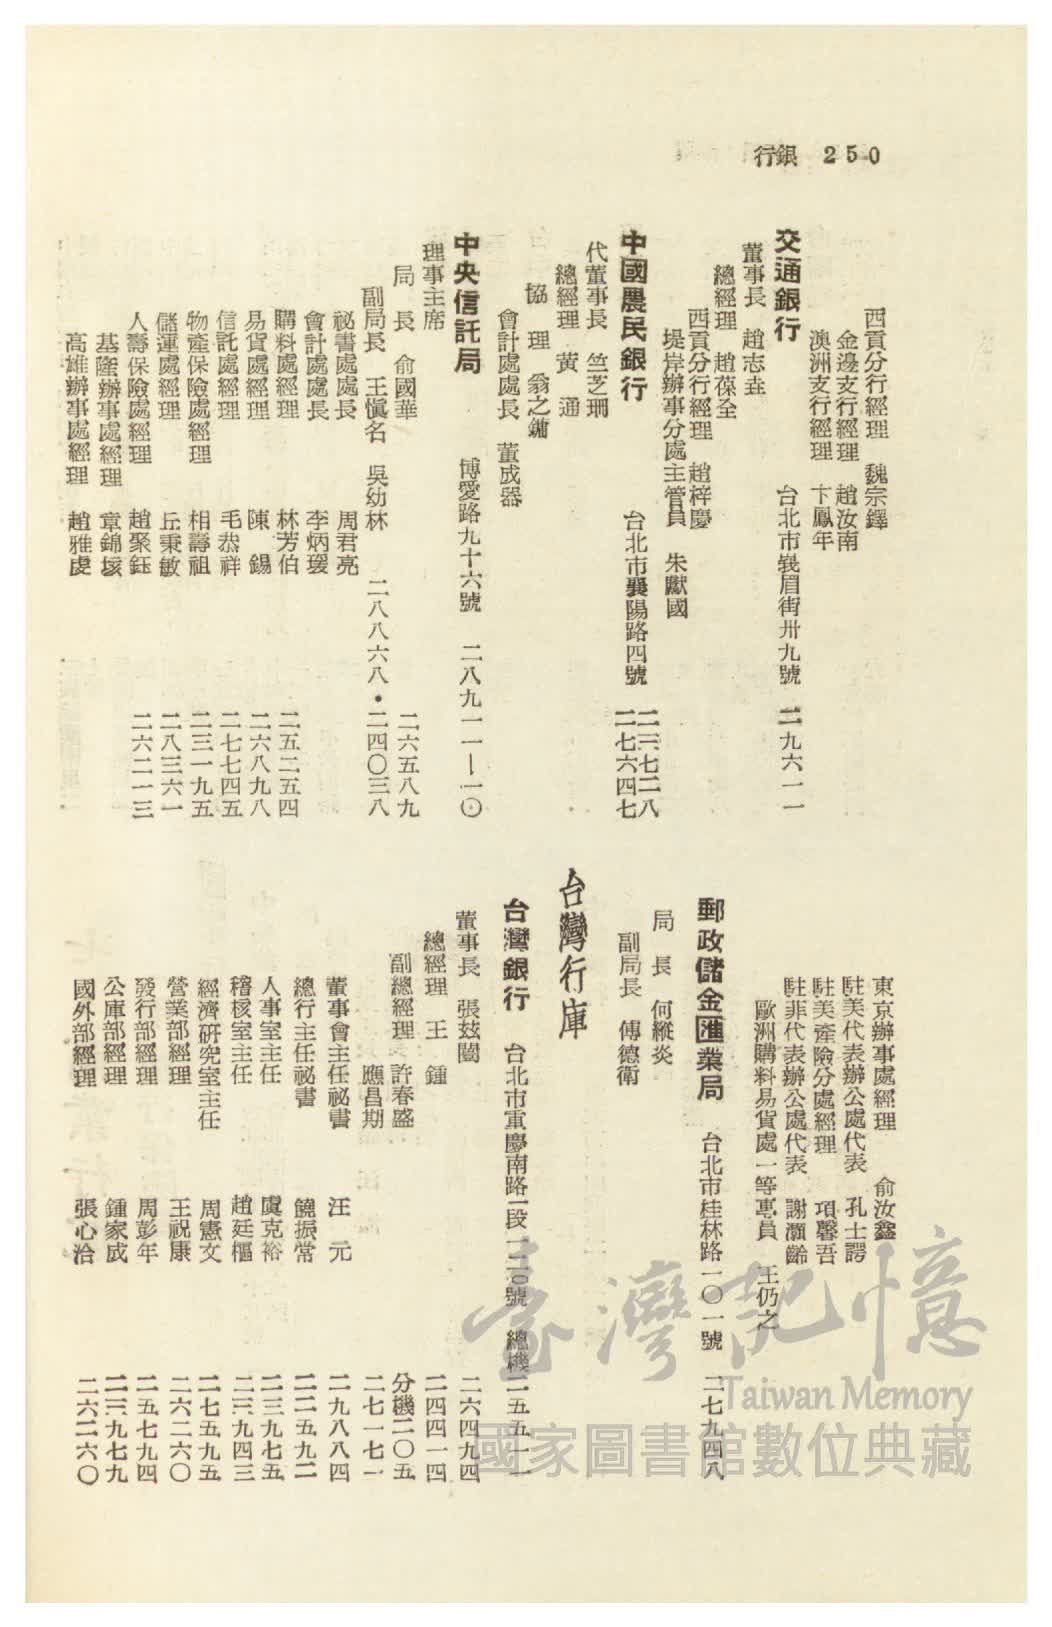 行銀　250
西貢分行經理　魏宗鐸
金邊支行經理　趙汝南
澳洲支行經理　卞鳳年
交通銀行　台北市峩眉街卅九號　二九六一一
董事長　趙志垚
總經理　趙葆全
西貢分行經理　趙梓慶
堤岸辦事分處主管員　朱獻國
中國農民銀行　台北市襄陽路四號　二三七二八　二七六四七
代董事長　竺芝珊
總經理　黃通
協理　翁之鏞
會計處處長　董成器
中央信託局　博愛路九十六號　二八九一一—一〇
理事主席
局長　俞國華　二六五八九
副局長　王愼名　吳幼林　二八八六八・二四〇三八
祕書處處長　周君亮
會計處處長　李炳瑗
購料處經理　林芳伯　二五二五四
易貨處經理　陳錫　二六八九八
信託處經理　毛恭祥　二七七四五
物產保險處經理　相壽祖　二三一九五
儲運處經理　丘秉敏　二八三六一
人壽保險處經理　趙聚鈺　二六二一三
基隆辦事處經理　章錦垓
高雄辦事處經理　趙雅虔
東京辦事處經理　俞汝鑫
駐美代表辦公處代表　孔士諤
駐美產險分處經理　項馨吾
駐菲代表辦公處代表　謝灝齡
歐洲購料易貨處一等專員　王仍之
郵政儲金匯業局　台北市桂林路一〇一號　二七九四八
局長　何縱炎
副局長　傅德衛
台灣行庫
台灣銀行　台北市重慶南路一段一二〇號　總機二五五一一
董事長　張玆闓　二六四九四
總經理　王鍾　二四四一四
副總經理　許春盛　分機二〇五
應昌期　二七一七一
董事會主任祕書　汪元　二九八八四
總行主任祕書　饒振常　二二五九二
人事室主任　虞克裕　二三九七五
稽核室主任　趙廷樞　二三九四三
經濟研究室主任　周憲文　二七五九五
營業部經理　王祝康　二六二六〇
發行部經理　周彭年　二五七九四
公庫部經理　鍾家成　二三九七九
國外部經理　張心洽　二六二六〇
臺灣記憶
Taiwan Memory
國家圖書館數位典藏